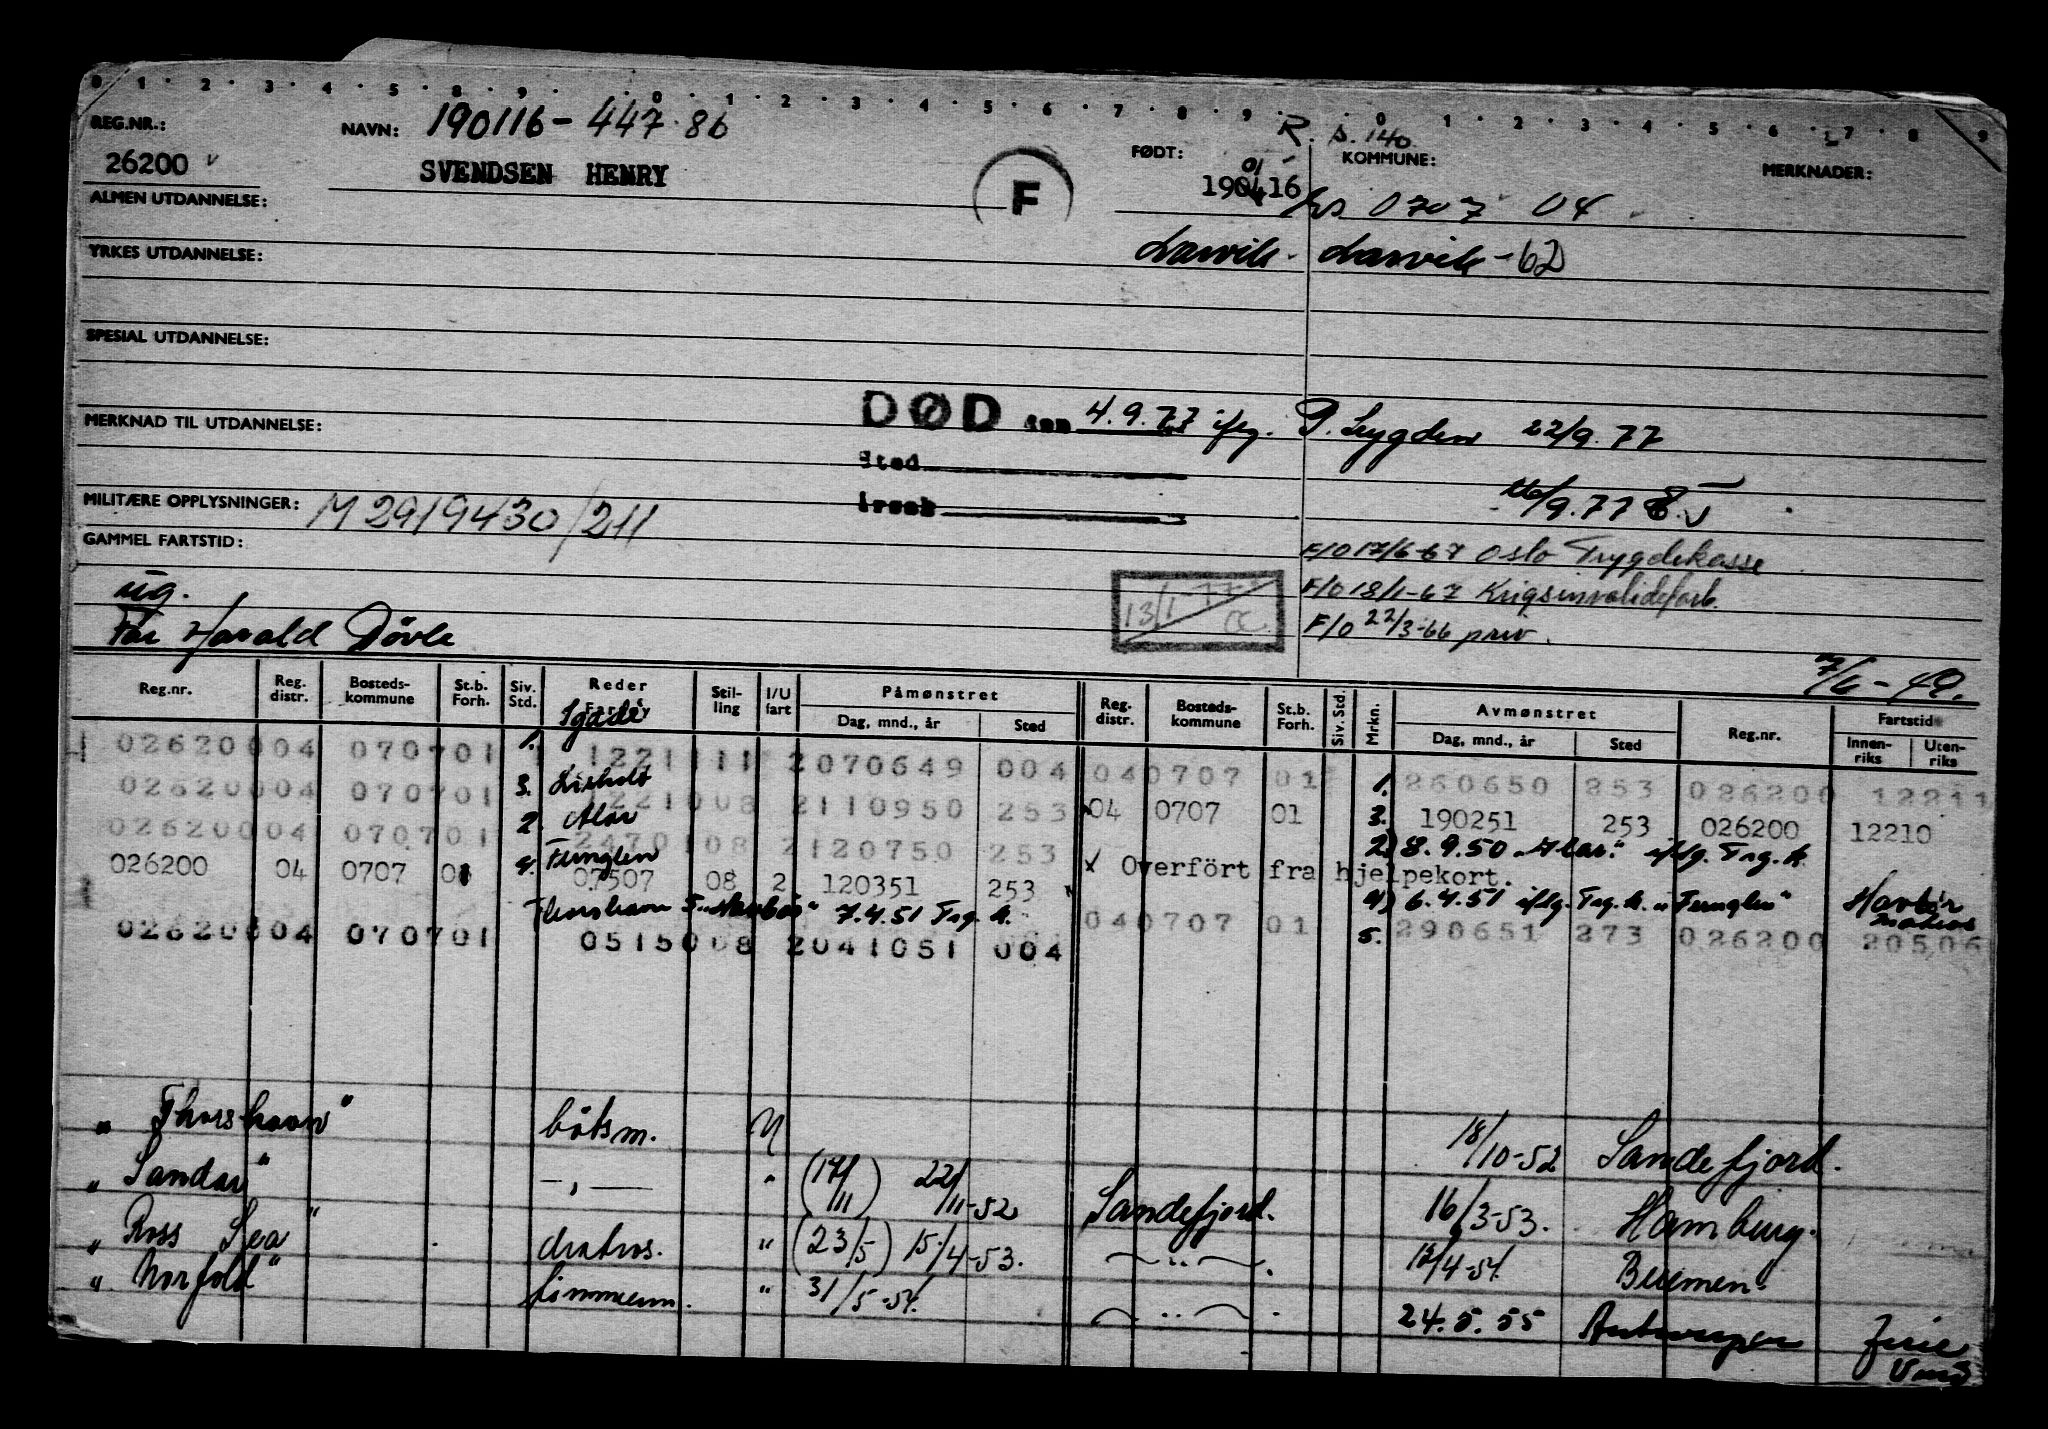 0 1 2 3 4 5 8 9 0 1 2 3 4 5 6 7 8 9 0 1 2 3 4 5 6 7 8 9
REG.NR.: NAVN: 190116 - 447 86 FØDT: R. s. 140 KOMMUNE: MERKNADER:
26200 SVENDSEN HENRY F 190416 01 0707 04
ALMEN UTDANNELSE:
YRKES UTDANNELSE: Larvik. Larvik - 62
SPESIAL UTDANNELSE:
MERKNAD TIL UTDANNELSE: DØD den 4.9.77 iflg. 22/9.77
Sted
Årsak
/9.77
MILITÆRE OPPLYSNINGER: M 2919430/211
GAMMEL FARTSTID: F/O 17/6-67 Oslo Trygdekasse
ug. 13/1-77 F/O 18/1-67 Krigsinvalideforb.
Far Harald Dövle F/O 22/3-66 priv.
7/6-49.
Reg.nr. Reg. distr. Bosteds- kommune St.b. Forh. Siv. Std. Reder Fartøy Stil- ling I/U fart Påmønstret Dag, mnd., år Sted Reg. distr. Bosteds- kommune St.b. Forh. Siv. Std. Mrkn. Avmønstret Dag, mnd., år Sted Reg.nr. Fartstid Innen- riks Uten- riks
026200 04 0707 01 1. 12211 11 2 070649 004 04 0707 01 1. 260650 253 026200 12211
026200 04 0707 01 3. 12210 08 2 110950 253 04 0707 01 3. 190251 253 026200 12210
026200 04 0707 01 2. Alar 24701 08 2 120750 253 2) 8.9.50 "Alar" iflg. Trg. k.
026200 04 0707 01 4. Fernglen 07507 08 2 120351 253 Overfört fra hjelpekort.
Thorshavn 5. "Havbör" 7.4.51 Trg. k. 4) 6.4.51 iflg. Trg. k. "Fernglen" Havbör
026200 04 0707 01 05150 08 2 041051 004 04 0707 01 5. 290651 273 026200 20506
" Thorshavn" båtsm. U 18/10-52 Sandefjord.
" Sandar" - " - " (14/11) 22/11-52 Sandefjord. 16/3-53. Hamburg.
" Ross Sea" " (23/5) 15/4-53. - " - . /4-54. Bremen.
" Norfold" timmerm. " 31/5-54. - " - . 24.5.55 Antwerpen Ferie